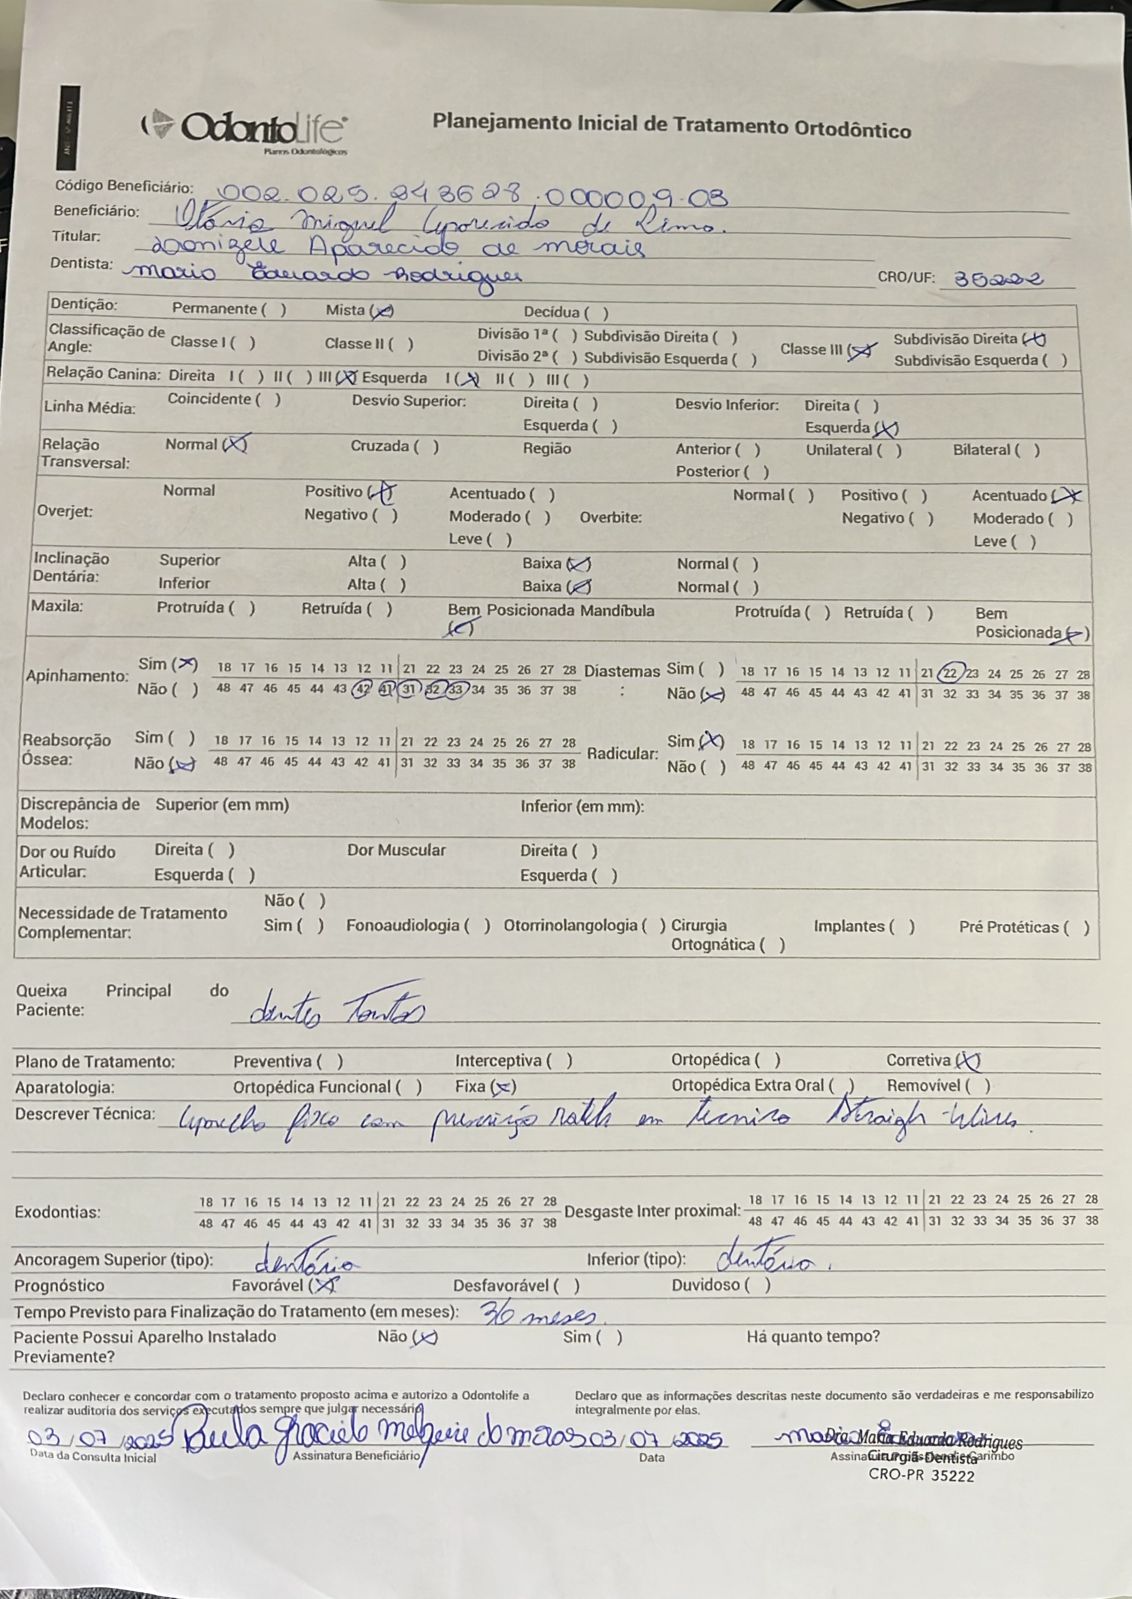 OdontoLife
Planos Odontológicos
Planejamento Inicial de Tratamento Ortodôntico
Código Beneficiário: 002.025.243628.000009.03
Beneficiário: Miguel Aparecido de Lima.
Titular: Donizete Aparecido de morais
Dentista: maria Eduarda Rodrigues CRO/UF: 35222
Dentição: Permanente ( ) Mista (x) Decídua ( )
Classificação de Angle: Classe I ( ) Classe II ( ) Divisão 1ª ( ) Subdivisão Direita ( ) Classe III (x) Subdivisão Direita (x)
Divisão 2ª ( ) Subdivisão Esquerda ( ) Subdivisão Esquerda ( )
Relação Canina: Direita I ( ) II ( ) III (x) Esquerda I (x) II ( ) III ( )
Linha Média: Coincidente ( ) Desvio Superior: Direita ( ) Desvio Inferior: Direita ( )
Esquerda ( ) Esquerda (x)
Relação Transversal: Normal (x) Cruzada ( ) Região Anterior ( ) Unilateral ( ) Bilateral ( )
Posterior ( )
Overjet: Normal Positivo (x) Acentuado ( ) Normal ( ) Positivo ( ) Acentuado (x)
Negativo ( ) Moderado ( ) Overbite: Negativo ( ) Moderado ( )
Leve ( ) Leve ( )
Inclinação Dentária: Superior Alta ( ) Baixa (x) Normal ( )
Inferior Alta ( ) Baixa (x) Normal ( )
Maxila: Protruída ( ) Retruída ( ) Bem Posicionada (x) Mandíbula Protruída ( ) Retruída ( ) Bem Posicionada (x)
Apinhamento: Sim (x) 18 17 16 15 14 13 12 11 21 22 23 24 25 26 27 28 Diastemas : Sim ( ) 18 17 16 15 14 13 12 11 21 22 23 24 25 26 27 28
Não ( ) 48 47 46 45 44 43 42 41 31 32 33 34 35 36 37 38 Não (x) 48 47 46 45 44 43 42 41 31 32 33 34 35 36 37 38
Reabsorção Óssea: Sim ( ) 18 17 16 15 14 13 12 11 21 22 23 24 25 26 27 28 Radicular: Sim (x) 18 17 16 15 14 13 12 11 21 22 23 24 25 26 27 28
Não (x) 48 47 46 45 44 43 42 41 31 32 33 34 35 36 37 38 Não ( ) 48 47 46 45 44 43 42 41 31 32 33 34 35 36 37 38
Discrepância de Modelos: Superior (em mm) Inferior (em mm):
Dor ou Ruído Articular: Direita ( ) Dor Muscular Direita ( )
Esquerda ( ) Esquerda ( )
Necessidade de Tratamento Complementar: Não ( )
Sim ( ) Fonoaudiologia ( ) Otorrinolangologia ( ) Cirurgia Ortognática ( ) Implantes ( ) Pré Protéticas ( )
Queixa Principal do Paciente: dentes Tortos
Plano de Tratamento: Preventiva ( ) Interceptiva ( ) Ortopédica ( ) Corretiva (x)
Aparatologia: Ortopédica Funcional ( ) Fixa (x) Ortopédica Extra Oral ( ) Removível ( )
Descrever Técnica: Aparelho fixo com prescrição roth em tecnica Straigh-Wires.
Exodontias: 18 17 16 15 14 13 12 11 21 22 23 24 25 26 27 28 Desgaste Inter proximal: 18 17 16 15 14 13 12 11 21 22 23 24 25 26 27 28
48 47 46 45 44 43 42 41 31 32 33 34 35 36 37 38 48 47 46 45 44 43 42 41 31 32 33 34 35 36 37 38
Ancoragem Superior (tipo): dentária Inferior (tipo): dentária.
Prognóstico Favorável (x) Desfavorável ( ) Duvidoso ( )
Tempo Previsto para Finalização do Tratamento (em meses): 36 meses.
Paciente Possui Aparelho Instalado Previamente? Não (x) Sim ( ) Há quanto tempo?
Declaro conhecer e concordar com o tratamento proposto acima e autorizo a Odontolife a
realizar auditoria dos serviços executados sempre que julgar necessário
Declaro que as informações descritas neste documento são verdadeiras e me responsabilizo
integralmente por elas.
03/07/2025 Paula 03/07/2025 maria
Data da Consulta Inicial Assinatura Beneficiário Data
Dra. Maria Eduarda Rodrigues
Cirurgiã-Dentista
CRO-PR 35222